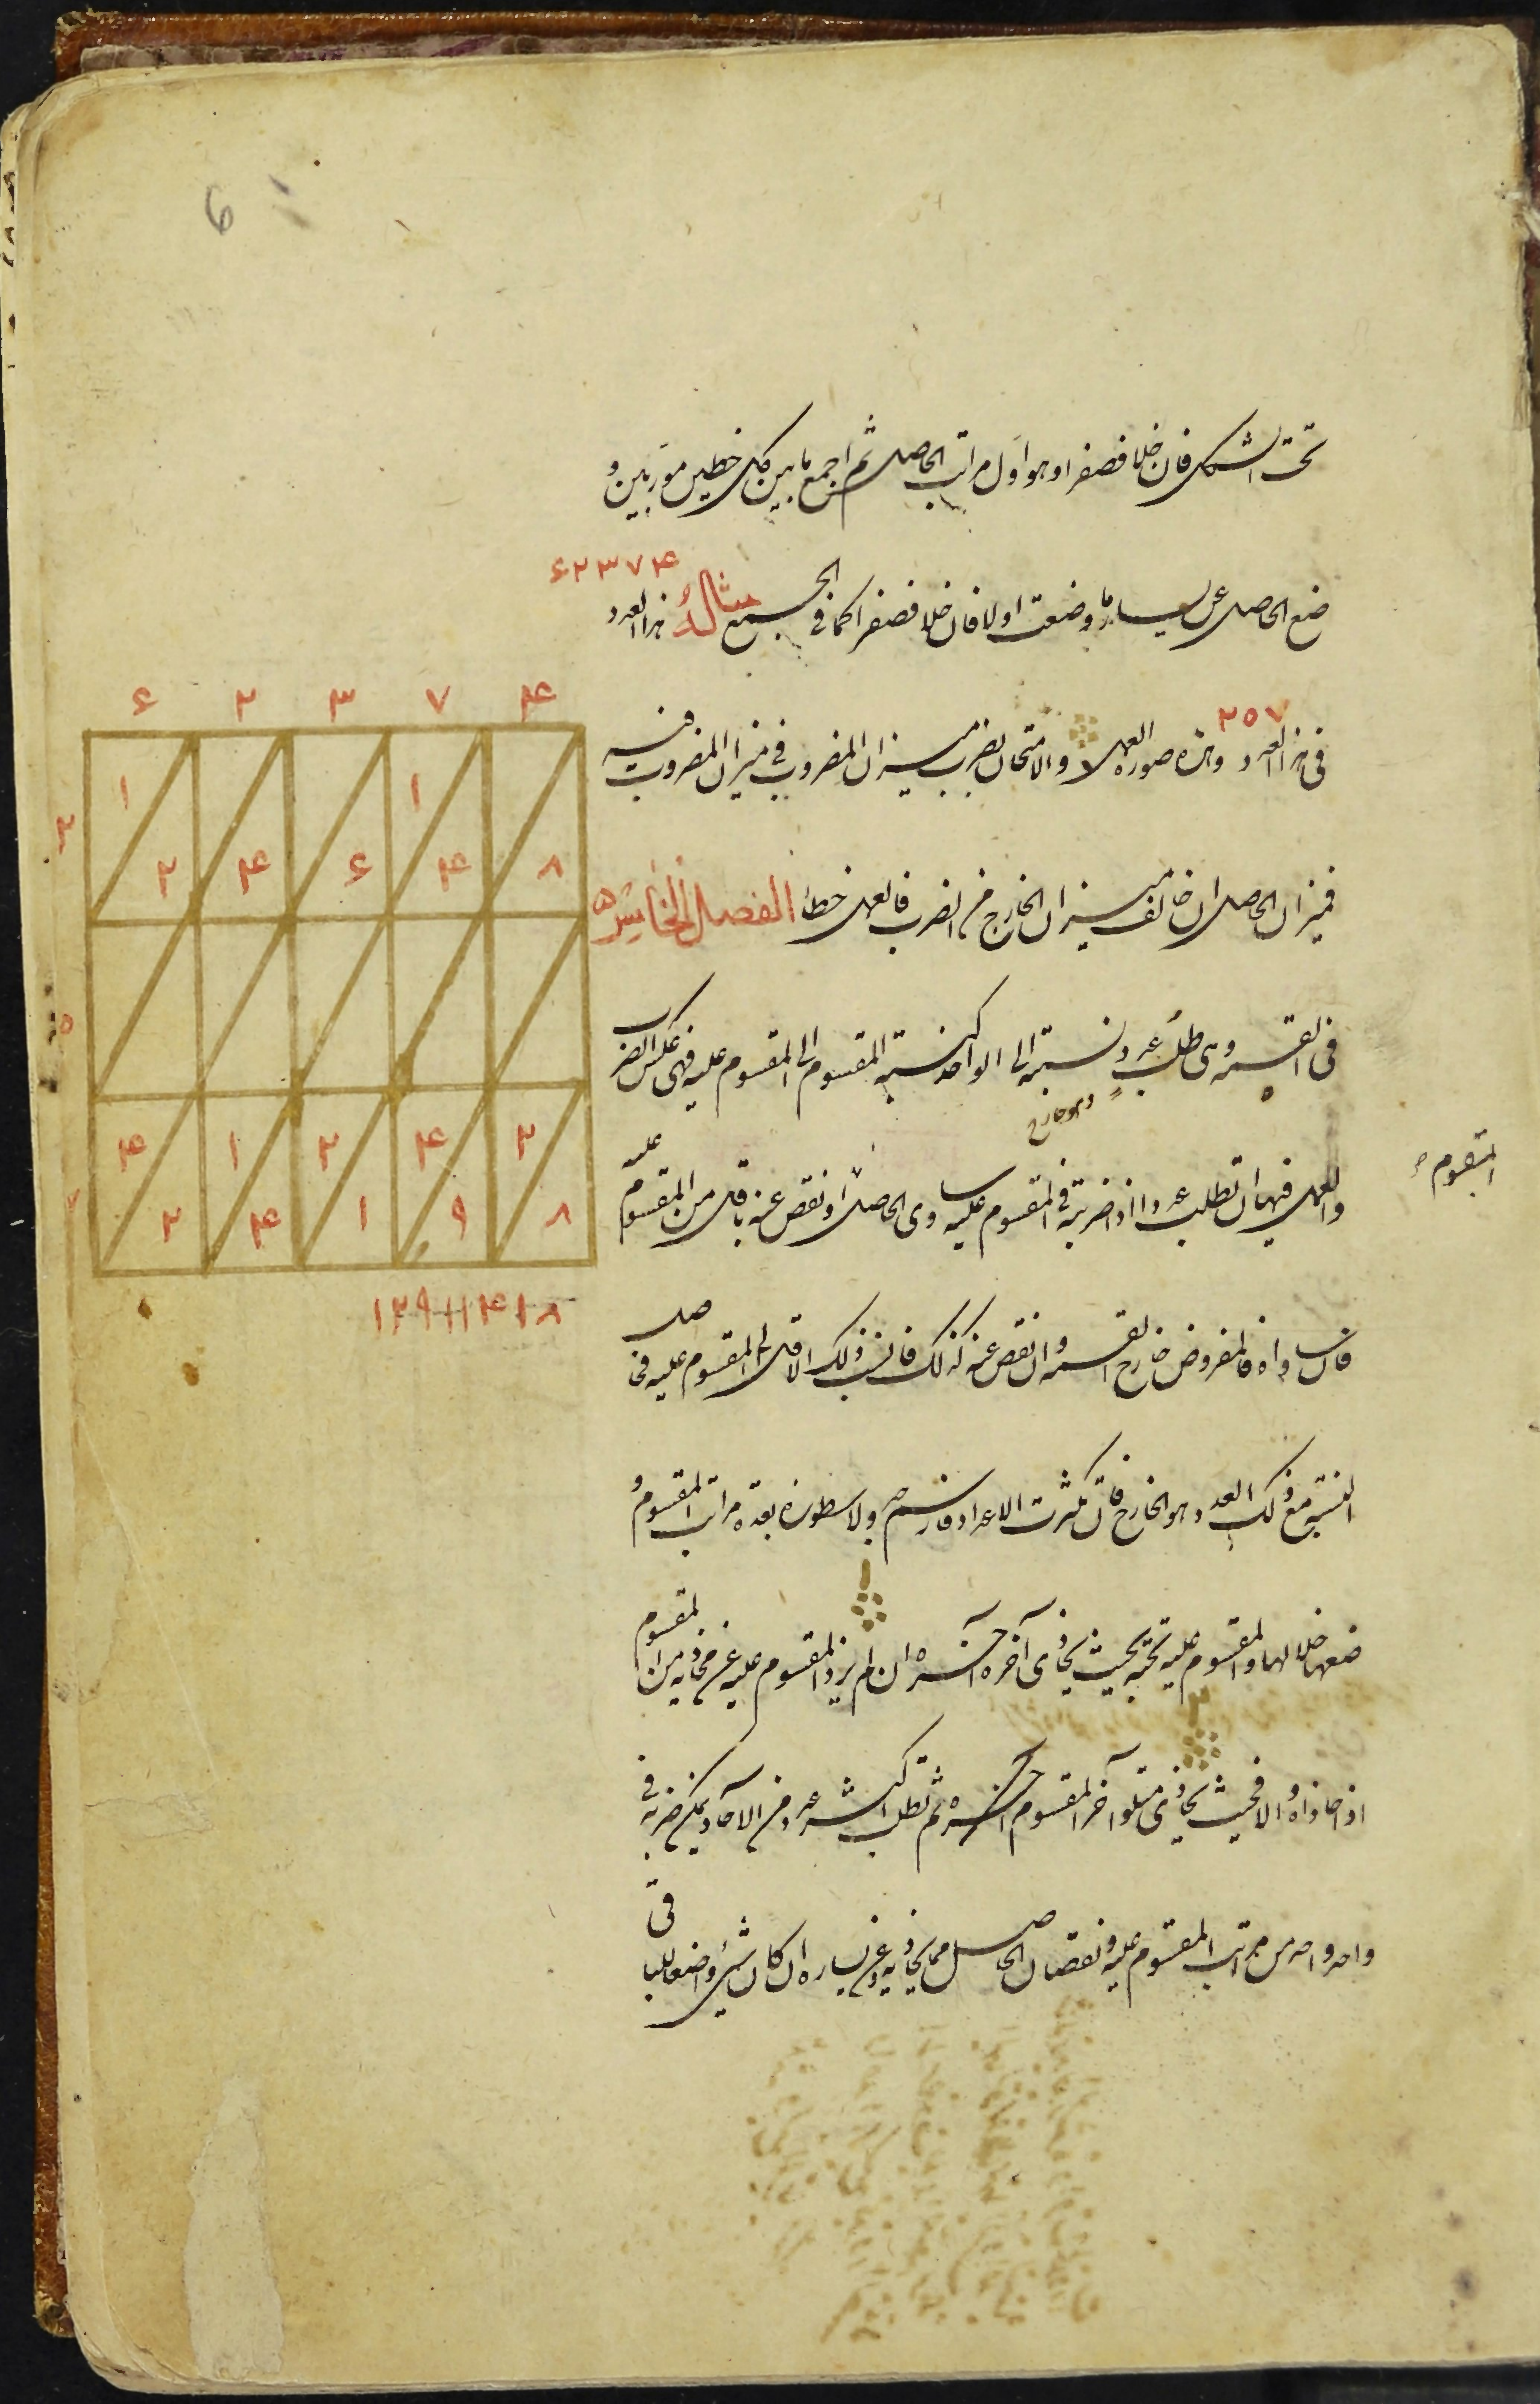 6
تحت الشكل فان خلا فصفرا و هو اول مراتب الحاصل ثم اجمع ما بين كل خطين موربين و
ضع الحاصل عن يسار ما وضعت اولا فان خلا فصفرا كما فى الجمع مثاله هذا العدد ۶۲۳۷۴
فى هذا العدد ۲۵۷ و هذه صورة العمل و الامتحان بضرب ميزان المضروب فى ميزان المضروب فيه
فميزان الحاصل ان خالف ميزان الخارج من الضرب فالعمل خطأ الفصل الخامس
فى القسمة و هى طلب عدد نسبته الى الواحد كنسبة المقسوم الى المقسوم عليه فهى عكس الضرب
و هو خارج
و العمل فيها ان تطلب عددا اذا ضربته فى المقسوم عليه ساوى الحاصل او نقص عنه باقل من المقسوم عليه
المقسوم
فان ساواه فالمفروض خارج القسمة و ان نقص عنه كذلك فانسب ذلك الاقل الى المقسوم عليه فحاصل
النسبة مع ذلك العدد هو الخارج فان تكثرت الاعداد فارسم جدولا سطوره بعدة مراتب المقسوم و
ضعها خلالها و المقسوم عليه تحته بحيث يحاذى آخره آخره ان لم يزد المقسوم عليه عن محاذيه من المقسوم
اذا حاذاه و الا فبحيث يحاذى متلو آخر المقسوم آخره ثم تطلب اكثر عدد من الآحاد يمكن ضربه فى
واحد واحد من مراتب المقسوم عليه و نقصان الحاصل مما يحاذيه و عن يساره ان كان شىء واضعا للباقى
۶ ۲ ۳ ۷ ۴
۲ ۱ ۱
۲ ۴ ۶ ۴ ۸
۵
۷ ۴ ۱ ۲ ۴ ۲
۲ ۴ ۱ ۹ ۸